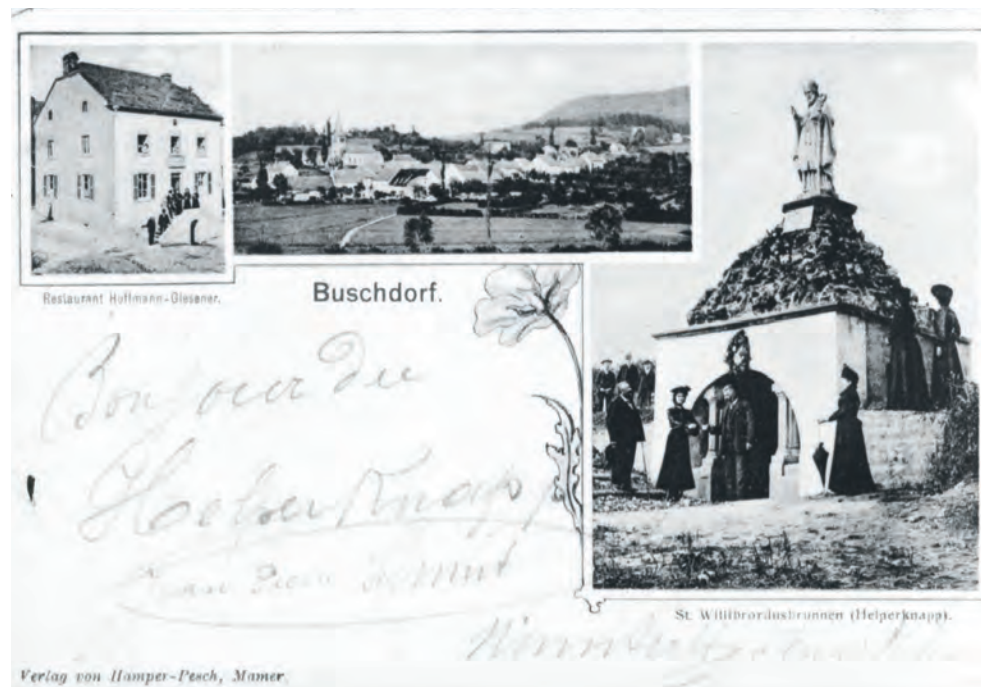 Restaurant Hoffmann-Glesener.
Buschdorf.
Bon jour du
Helperknapp
St. Willibrordusbrunnen (Helperknapp).
Verlag von Hamper-Pesch, Mamer.